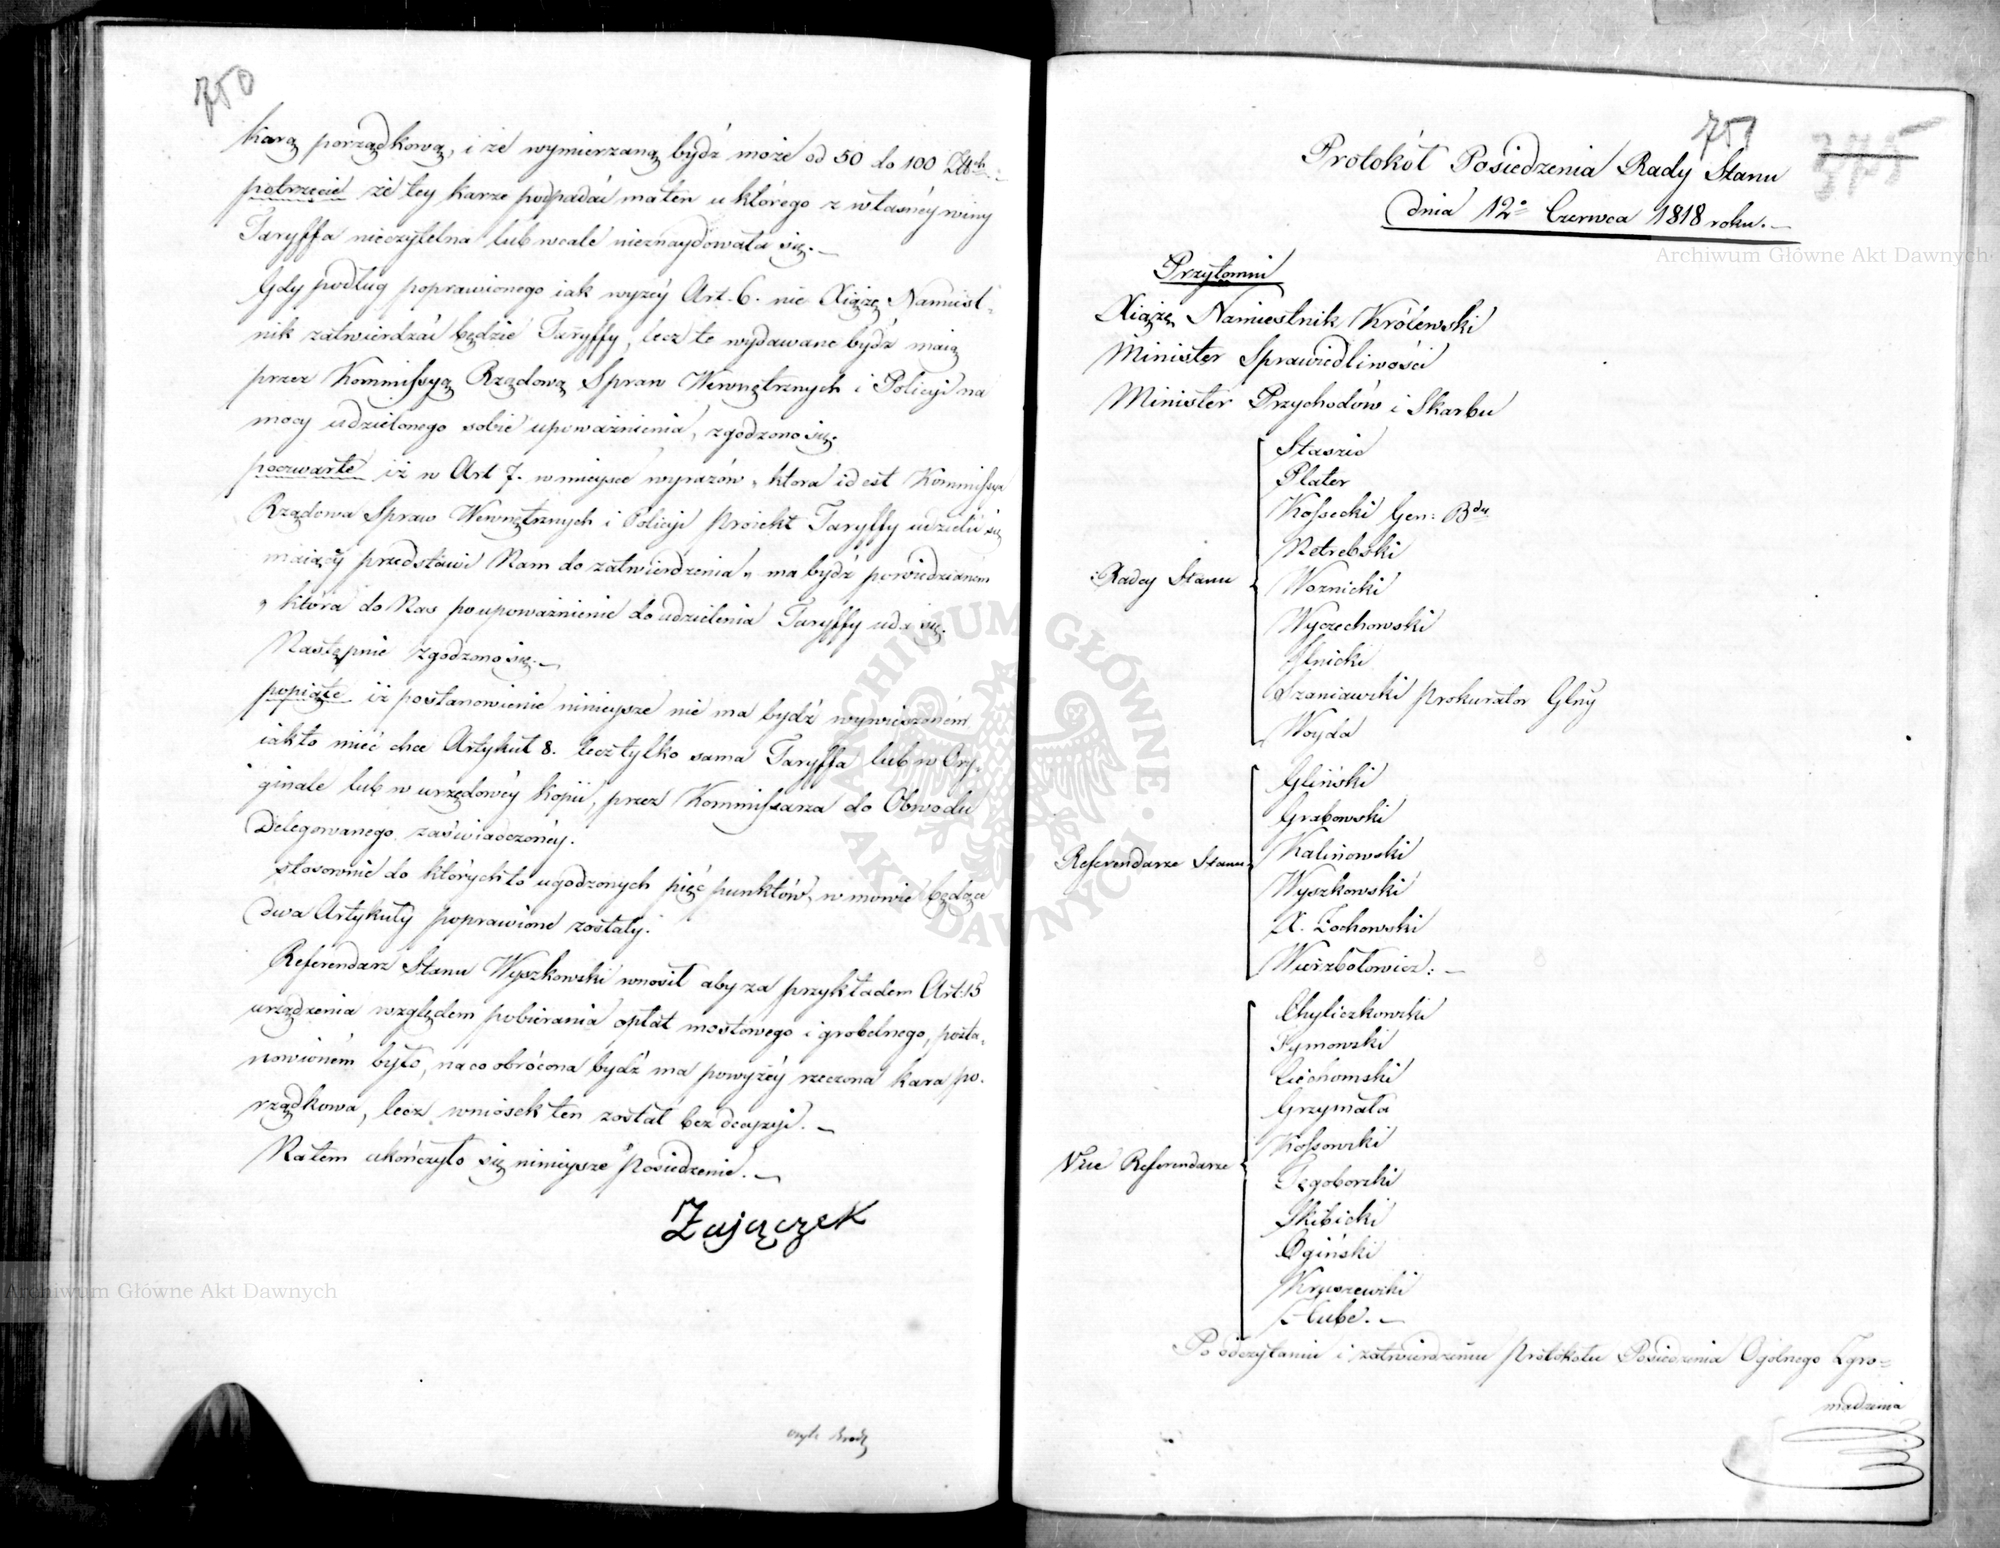 750
karą porządkową, i że wymierzaną bydź może od 50 do 100 Złtch.
potrzecie że tey karze podpadać ma ten u którego z własnéy winy
Taryffa nieczytelna lub wcale nieznaydowała się.
Gdy podług poprawionego iak wyżéy Art. 6. nie Xiążę Namiest-
nik zatwierdzać będzie Taryffy, lecz te wydawane bydź maią
przez Kommissyą Rządową Spraw Wewnętrznych i Policyi na
mocy udzielonego sobie upoważnienia, zgodzono się.
poczwarte iż w Art 7. w mieysce wyrazów „ktora id est Kommissya
Rządowa Spraw Wewnętrznych i Policyi Proiekt Taryffy udzielić się
maiącéy przedstawi Nam do zatwierdzenia„ ma bydź powiedzianém
„która do Nas po upoważnienie do udzielenia Taryffy uda się.
Następnie zgodzono się.
popiąte iż postanowienie ninieysze nie ma bydź wywieszoném
iak to mieć chce Artykuł 8. lecz tylko sama Taryffa lub w Ory-
ginale lub w urzędowéy kopii, przez Kommissarza do Obwodu
Delegowanego zaświadczonéy.
Stosownie do których to ugodzonych pięć punktów, w mowie będące
dwa Artykuły poprawione zostały.
Referendarz Stanu Wyszkowski wnosił aby za przykładem Art. 15
urządzenia względem pobierania opłat mostowego i grobelnego, posta-
nowioném było, na co obrócona bydź ma powyżéy rzeczona kara po-
rządkowa, lecz wniosek ten został bez decyzyi.
Na tem ukończyło się ninieysze Posiedzenie.
Zajączek
751
Protokół Posiedzenia Rady Stanu
dnia 12o Czerwca 1818 roku.
Przytomni
Xiążę Namiestnik Królewski
Minister Sprawiedliwości
Minister Przychodów i Skarbu
Radcy Stanu
Staszic
Plater
Kossecki Gen: Bdy
Netrebski
Woznicki
Wyczechowski
Szaniawski Prokurator Glny
Woyda
Referendarze Stanu
Gliński
Grabowski
Kalinowski
Wyszkowski
X. Żochowski
Wierzbołowicz.
Vice Referendarze
Chyliczkowski
Symowski
Ciechomski
Grzymała
Kossowski
Tęgoborski
Skibicki
Ogiński
Kruszewski
Hube.
Po odczytaniu i zatwierdzeniu Protokołu Posiedzenia Ogólnego Zgro-
madzenia
Archiwum Główne Akt Dawnych
Archiwum Główne Akt Dawnych
ARCHIWUM GŁÓWNE AKT DAWNYCH